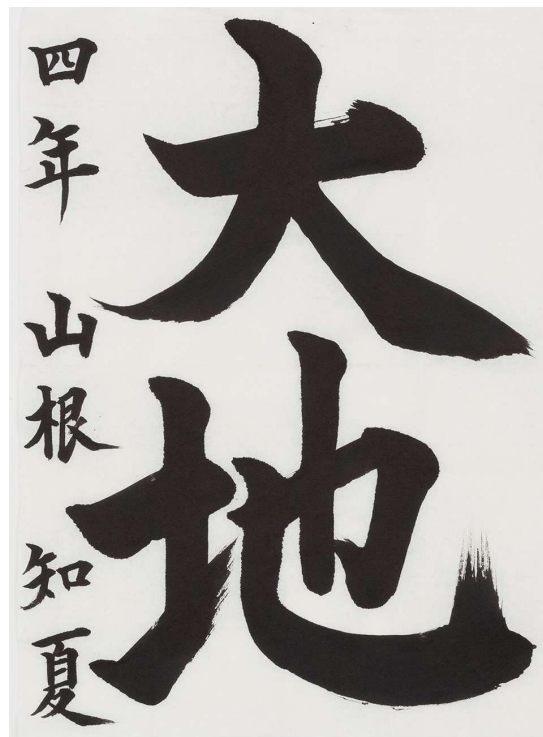 大地
四年 山根 知夏